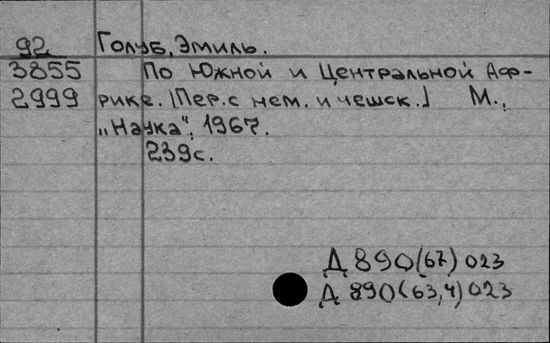 92 Голуб, Эмиль.
3855 По Южной и Центральной Аф-
2999 рике. [Пер. с нем. и чешск.] М.,
„Наука", 1967.
239с.
Д 890(67) 023
Д 890(63,4) 023